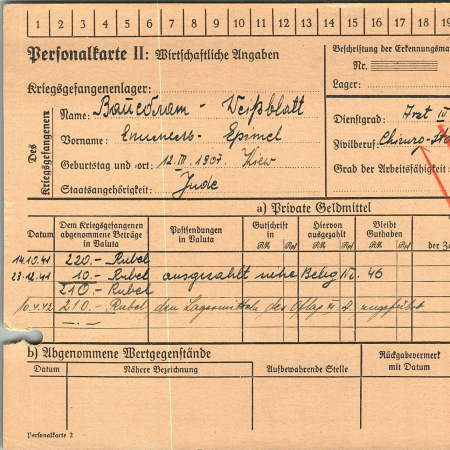 1 2 3 4 5 6 7 8 9 10 11 12 13 14 15 16 17 18 19
Personalkarte II: Wirtschaftliche Angaben
Beschriftung der Erkennungsma
Nr.
Kriegsgefangenenlager:
Lager:
Des Kriegsgefangenen
Name: Вайсблат - Weißblatt
Dienstgrad: Arzt IV
Vorname: Epimel
Zivilberuf: Chirurg
Geburtstag und -ort: 12.III.1907. Kiew
Grad der Arbeitsfähigkeit:
Staatsangehörigkeit: Jude
a) Private Geldmittel
Datum
Dem Kriegsgefangenen abgenommene Beträge in Valuta
Postsendungen in Valuta
Gutschrift in
Hiervon ausgezahlt
Bleibt Guthaben
der Za
RM Rpf RM Rpf RM Rpf
14.10.41 220.- Rubel
23.12.41 10.- Rubel ausgezahlt siehe Beleg Nr. 46
210 - Rubel
10.4.42 210.- Rubel den Lagermitteln des Oflag zugeführt
b) Abgenommene Wertgegenstände
Rückgabevermerk mit Datum
Datum
Nähere Bezeichnung
Aufbewahrende Stelle
Personalkarte 2